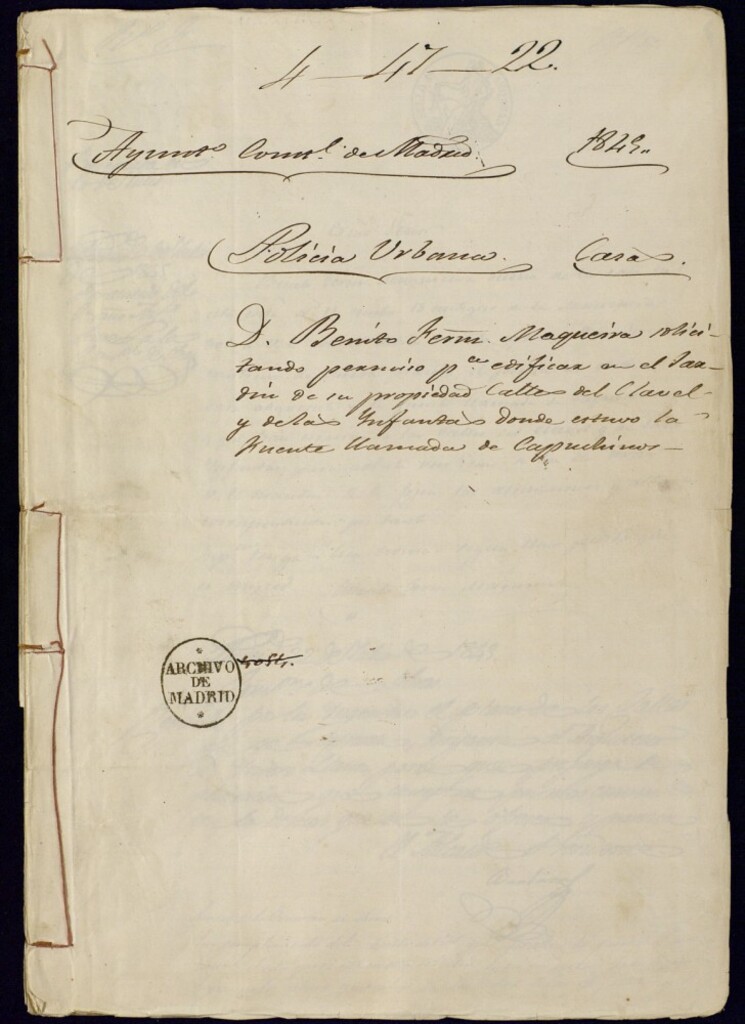 4-47-22.
Ayunto. Constl. de Madrid.
Policia Urbana. Casas.
D. Benito Fern. Maqueira solici-
tando permiso pa. edificar en el Jar-
din de su propiedad Calles del Clavel
y de las Infantas donde estuvo la
Fuente llamada de Capuchinos-
ARCHIVO
DE
MADRID